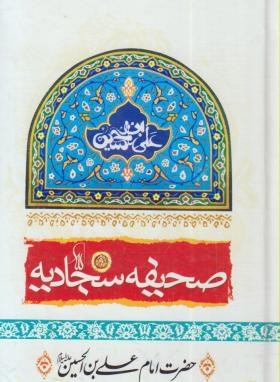 علی بن الحسین
صحیفه سجادیه
حضرت امام علی بن الحسین علیه‌السلام